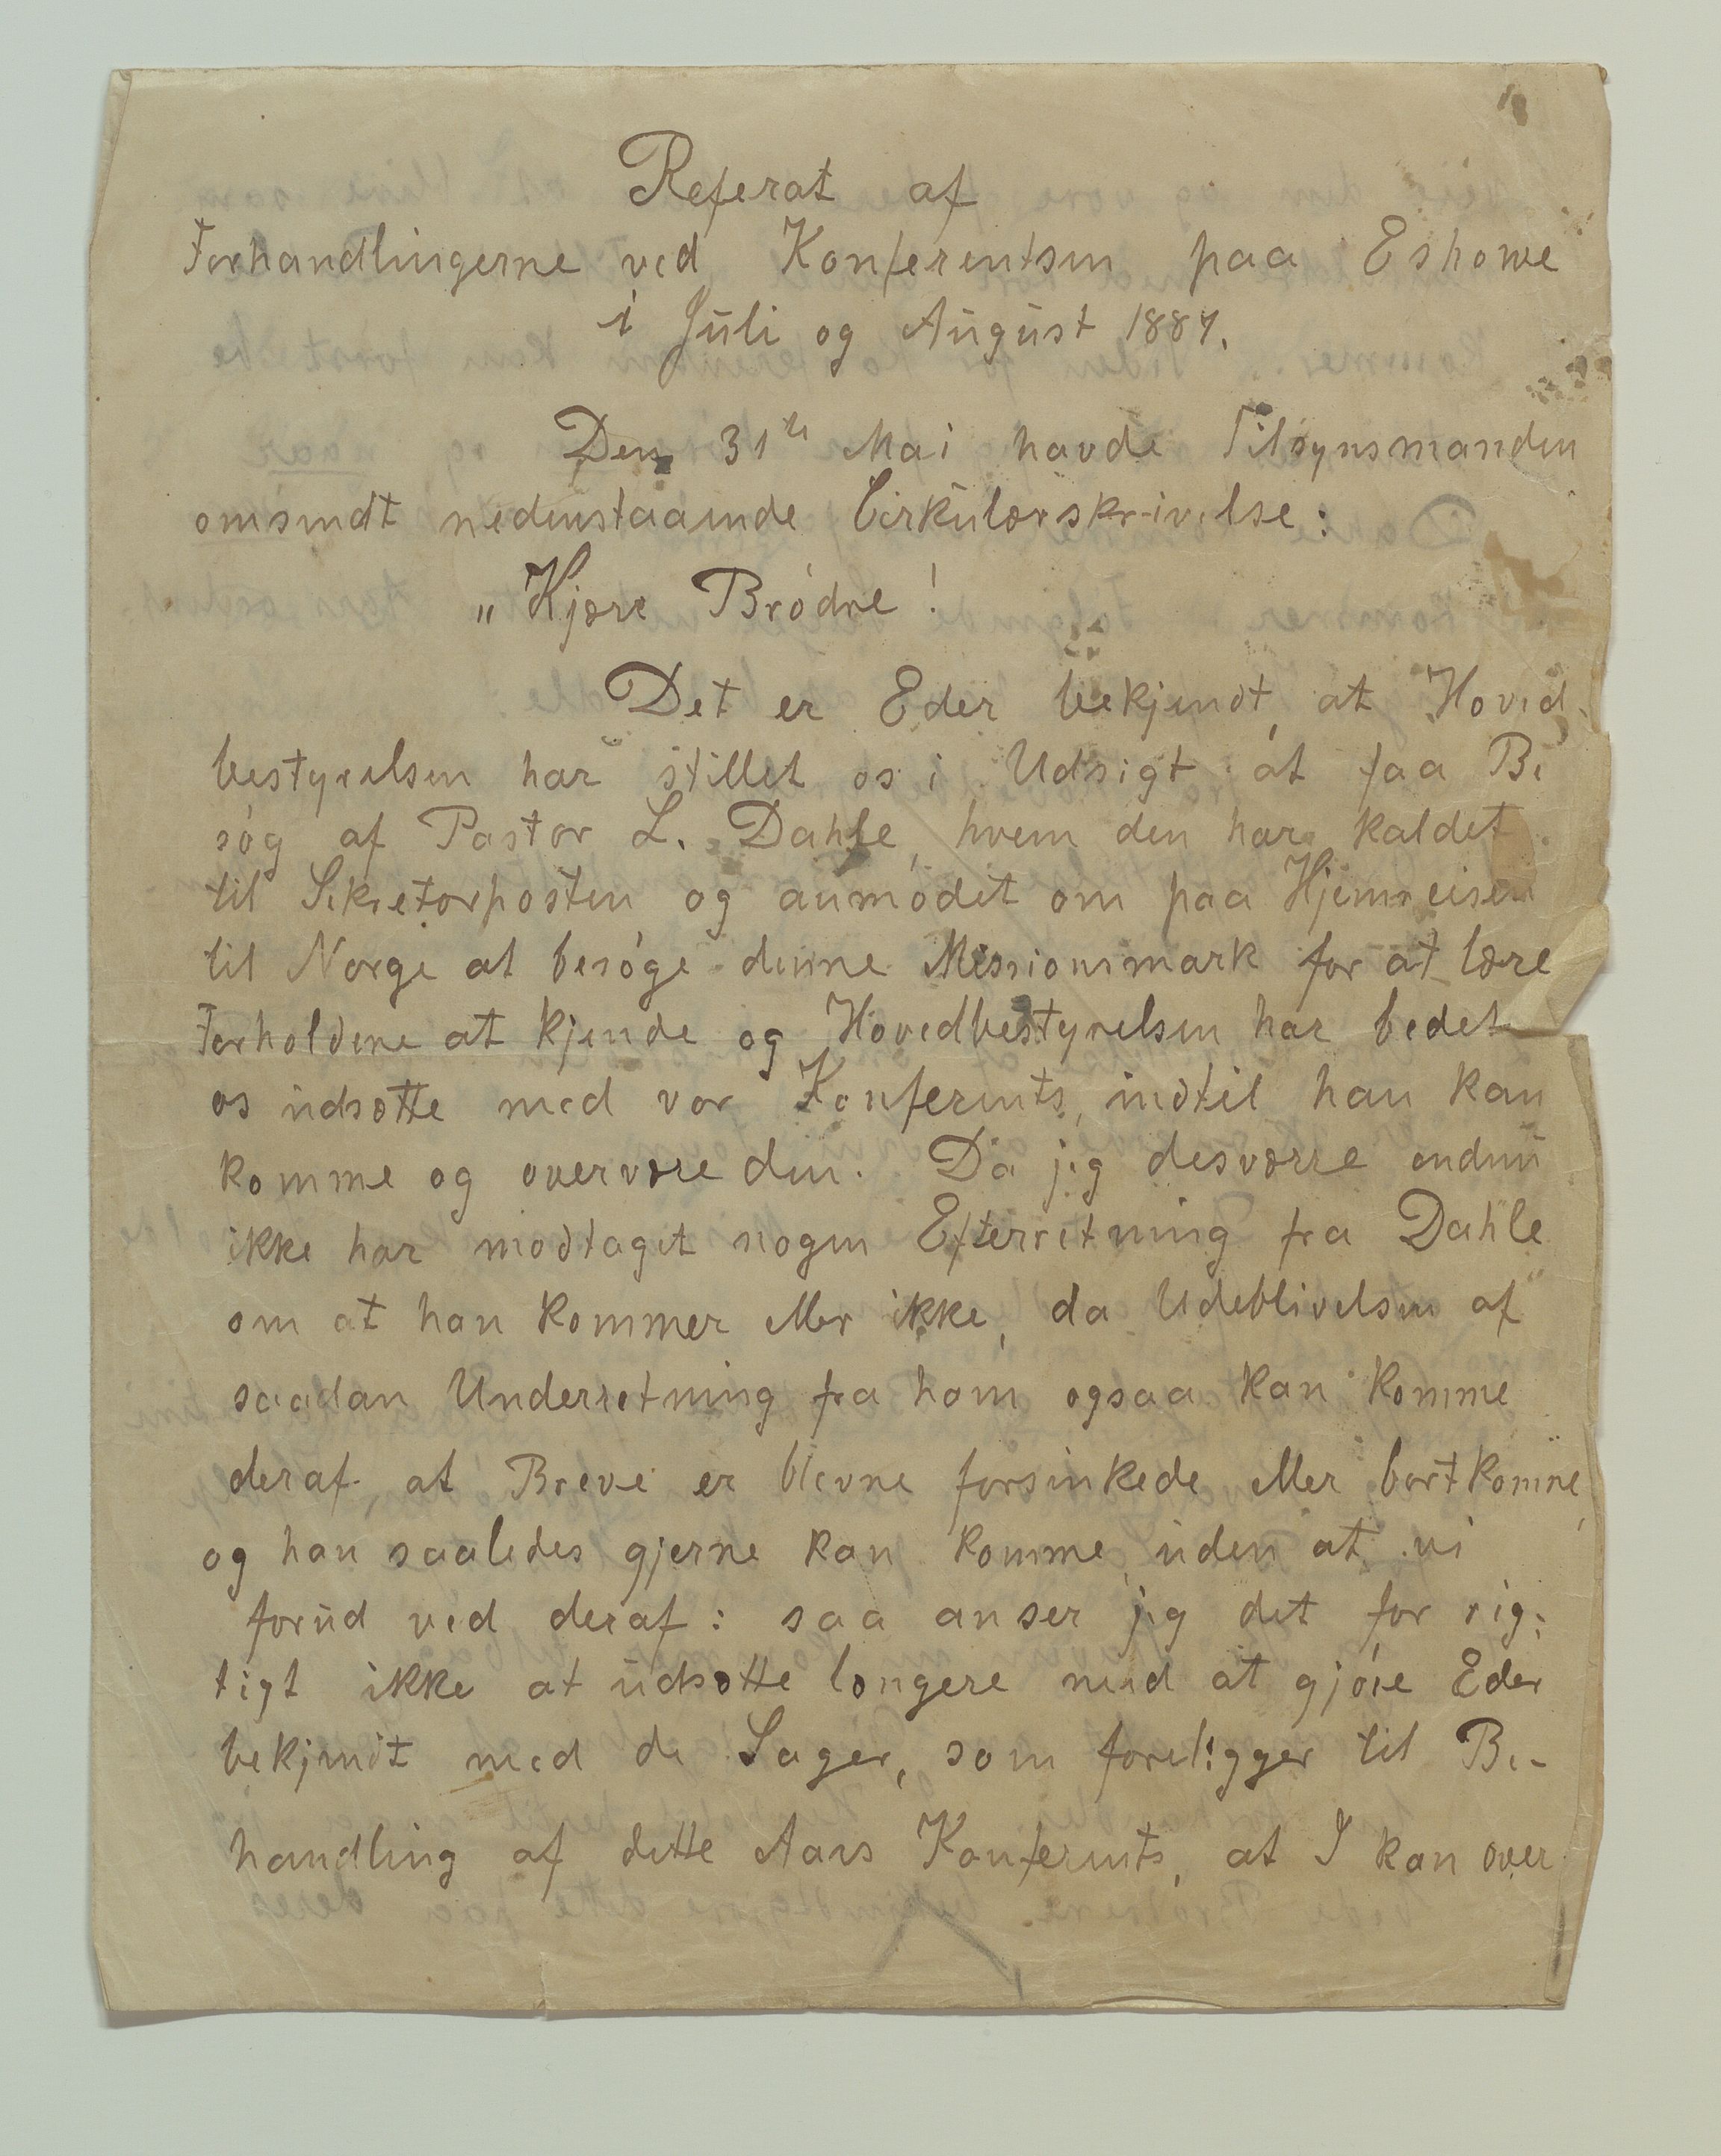 Referat af
Forhandlingerne ved Konferentsen paa Eshowe
i Juli og August 1887.
Den 31te Mai havde Tilsynsmanden
omsendt nedenstaaende Cirkulærskrivelse:
„Kjære Brødre!
Det er Eder bekjendt, at Hoved-
bestyrelsen har stillet os i Udsigt at faa Be
søg af Pastor L. Dahle, hvem den har kaldet
til Sekretærposten og anmodet om paa Hjemreisen
til Norge at besøge denne Missionsmark for at lære
Forholdene at kjende og Hovedbestyrelsen har bedet
os udsætte med vor Konferents, indtil han kan
komme og overvære den. Da jeg desværre endnu
ikke har modtaget nogen Efterretning fra Dahle
om at han kommer eller ikke, da Udeblivelsen af
saadan Underretning fra ham ogsaa kan komme
deraf at Breve er blevne forsinkede eller bortkomne,
og han saaledes gjerne kan komme, uden at vi
forud ved deraf: saa anser jeg det for rig:
tigt ikke at udsætte længere med at gjøre Eder
bekjendt med de Sager, som foreligger til Be-
handling af dette Aars Konferents, at I kan over